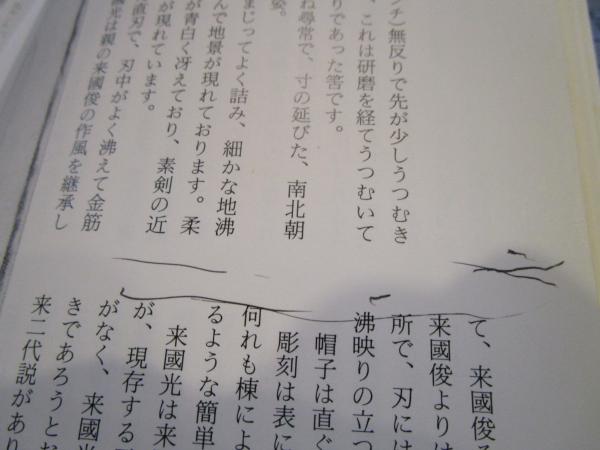 ンチ）無反りで先が少しうつむき
、これは研磨を経てうつむいて
りであった筈です。
ね尋常で、寸の延びた、南北朝
姿。
まじってよく詰み、細かな地沸
んで地景が現れております。柔
が青白く冴えており、素剣の近
が現れています。
直刃で、刃中がよく沸えて金筋
國光は親の来國俊の作風を継承し
て、来國俊
来國俊よりは
所で、刃には
沸映りの立つ
帽子は直ぐ
彫刻は表に
何れも棟によ
るような簡単
来國光は来
が、現存する
がなく、来國
きであろうとお
来二代説があり